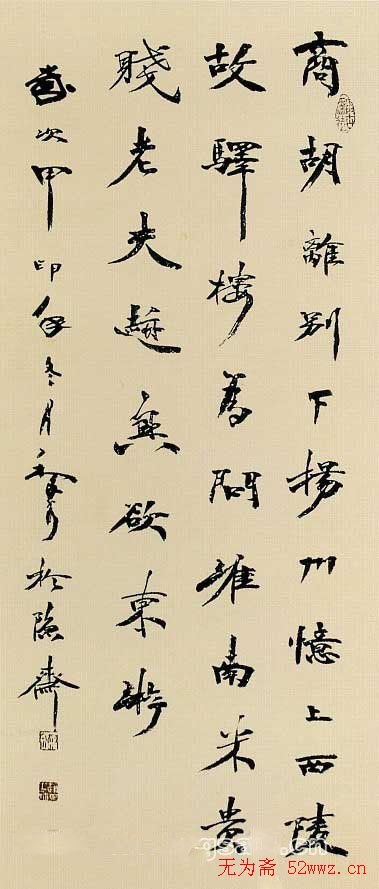 商胡離別下揚州憶上西陵
故驛樓為問淮南米貴
賤老夫興欲東游
歲次甲印年冬月於隱齋
无为斋 52wwz.cn